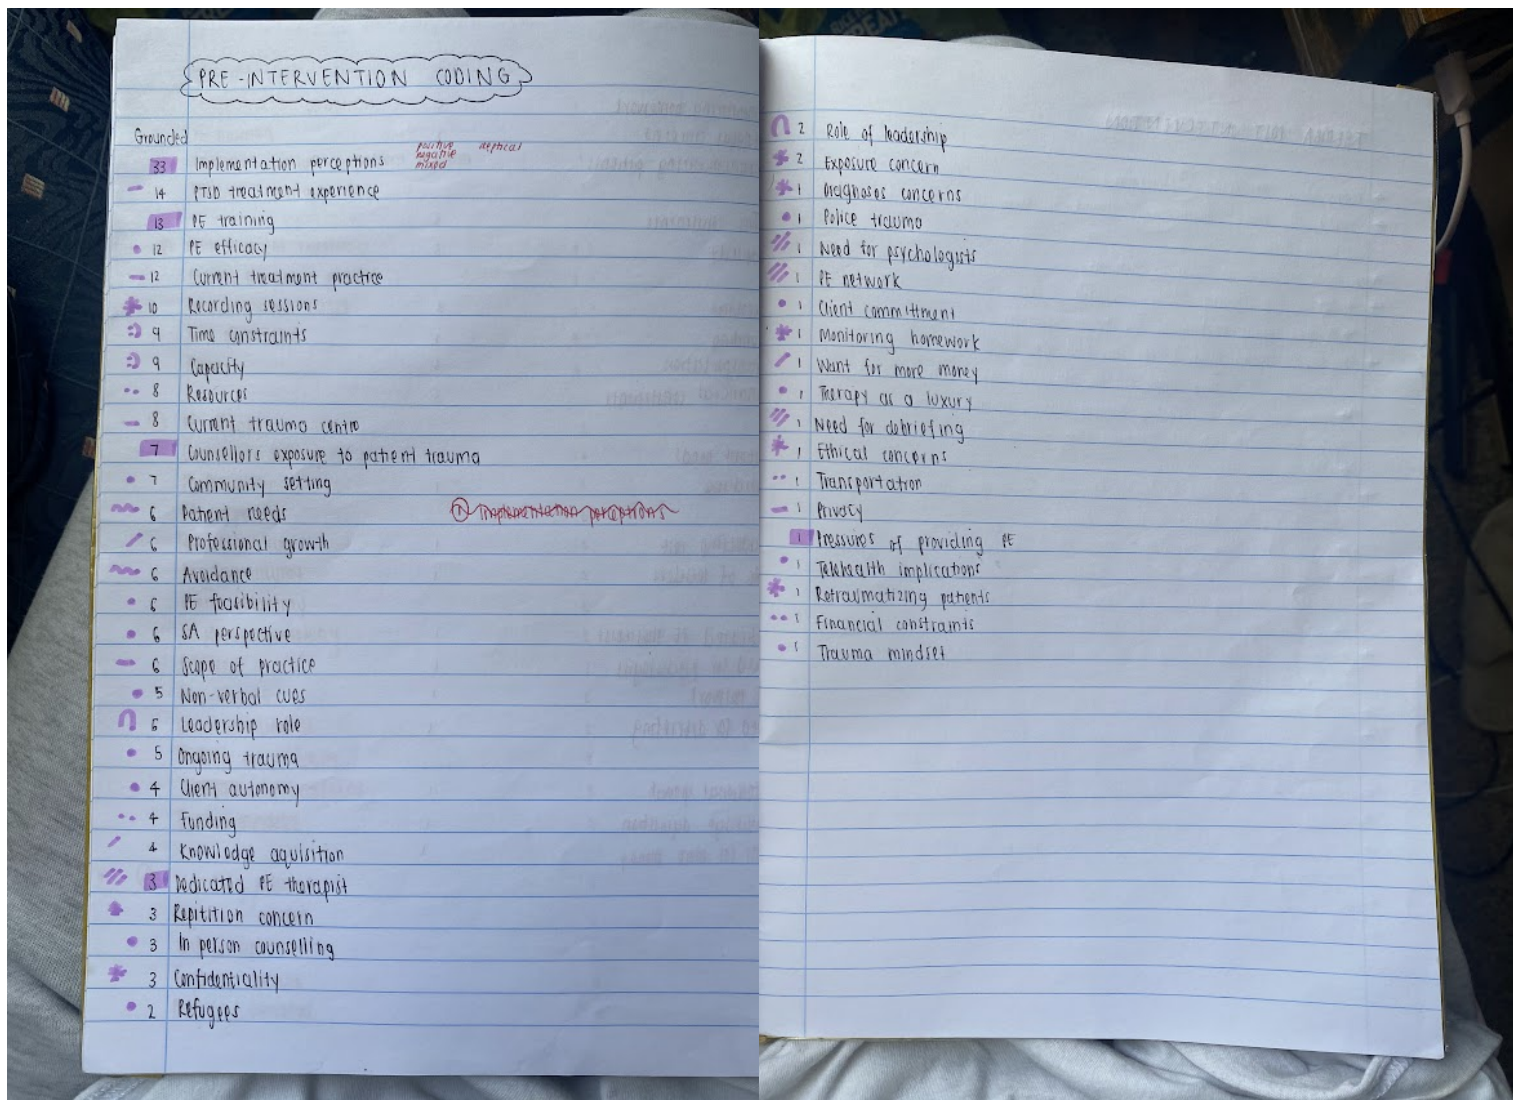 PRE-INTERVENTION CODING
Grounded
33 Implementation perceptions positive skeptical
negative
mixed
14 PTSD treatment experience
13 PE training
12 PE efficacy
12 Current treatment practice
10 Recording sessions
9 Time constraints
9 Capacity
8 Resources
8 Current trauma centre
7 Counsellors exposure to patient trauma
7 Community setting
6 Patient needs ① Implementation perceptions
6 Professional growth
6 Avoidance
6 PE feasibility
6 SA perspective
6 Scope of practice
5 Non-verbal cues
5 Leadership role
5 Ongoing trauma
4 Client autonomy
4 Funding
4 Knowledge aquisition
3 Dedicated PE therapist
3 Repitition concern
3 In person counselling
3 Confidentiality
2 Refugees
2 Role of leadership
2 Exposure concern
1 Diagnoses concerns
1 Police trauma
1 Need for psychologists
1 PE network
1 Client committment
1 Monitoring homework
1 Want for more money
1 Therapy as a luxury
1 Need for debriefing
1 Ethical concerns
1 Transportation
1 Privacy
1 Pressures of providing PE
1 Telehealth implications
1 Retraumatizing patients
1 Financial constraints
1 Trauma mindset